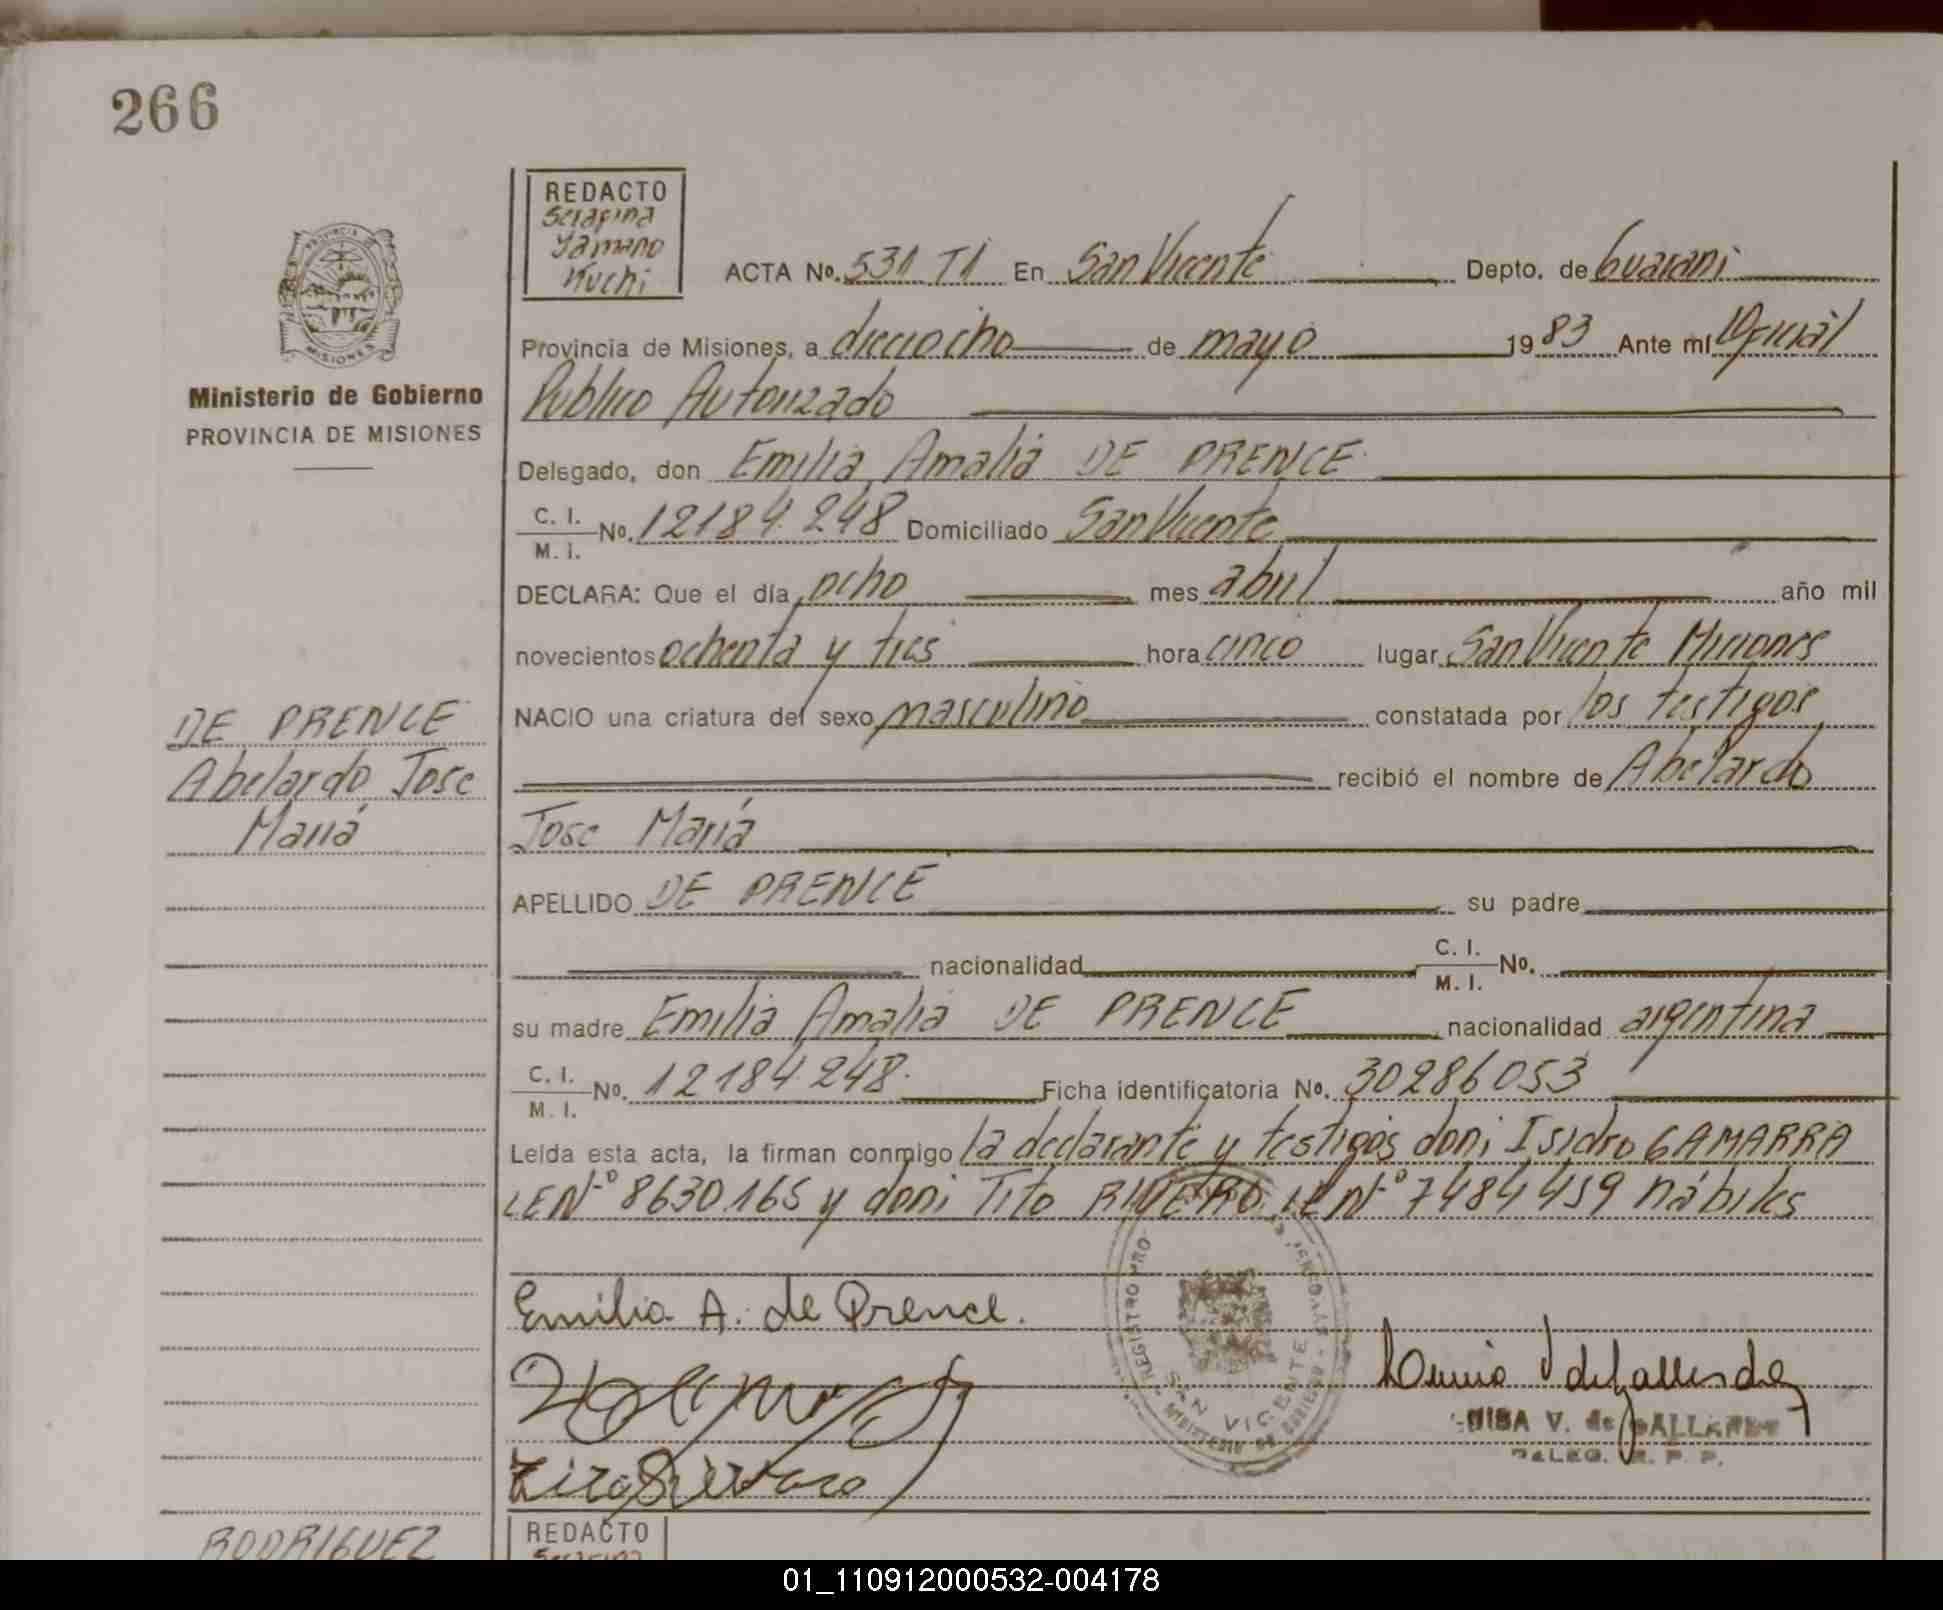 266
REDACTO
Serafina
Yamano
Kuchi
PROVINCIA DE
MISIONES
Ministerio de Gobierno
PROVINCIA DE MISIONES
ACTA No. 531 T1 En San Vicente Depto. de Guarani
Provincia de Misiones, a dieciocho de mayo 1983 Ante mi Oficial
Publico Autorizado
Delegado, don Emilia Amalia DE PRENCE
C. I.
M. I. No. 12184.248 Domiciliado San Vicente
DECLARA: Que el día ocho mes abril año mil
novecientos ochenta y tres hora cinco lugar San Vicente Misiones
NACIO una criatura del sexo masculino constatada por los testigos
recibió el nombre de Abelardo
Jose María
APELLIDO DE PRENCE su padre
nacionalidad C. I.
M. I. No.
su madre Emilia Amalia DE PRENCE nacionalidad argentina
C. I.
M. I. No. 12184.248. Ficha identificatoria No. 30286053
Leída esta acta, la firman conmigo la declarante y testigos don: Isidro GAMARRA
LE Nº 8630165 y don: Tito RIVERO LE Nº 7484459 hábiles
DE PRENCE
Abelardo Jose
María
Emilia A. de Prence.
REGISTRO PRO
SAN VICENTE
MINISTERIO DE GOBIERNO
V. de GALLARDO
DELEG. R. P. P.
RODRIGUEZ
REDACTO
Serafina
01_110912000532-004178